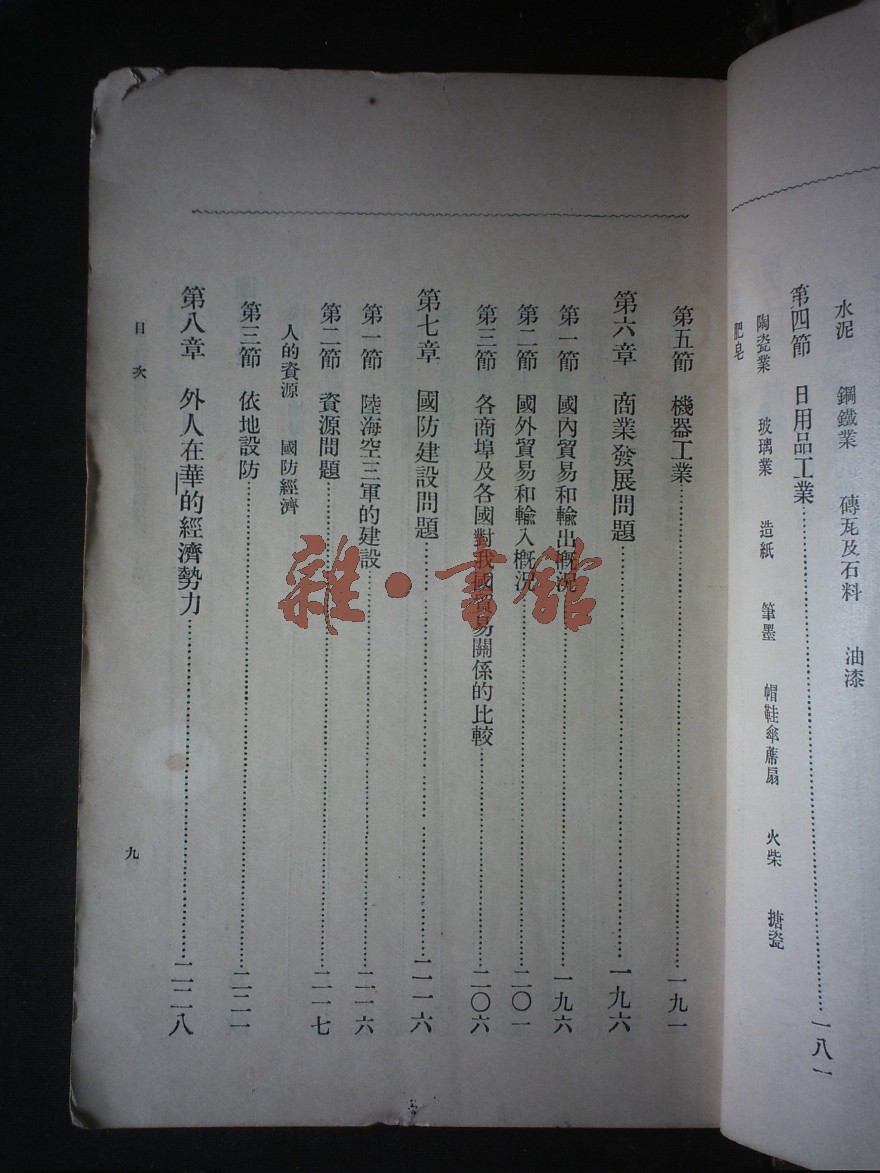 水泥　鋼鐵業　磚瓦及石料　油漆
第四節　日用品工業……一八一
陶瓷業　玻璃業　造紙　筆墨　帽鞋傘蓆扇　火柴　搪瓷
肥皂
第五節　機器工業……一九一
第六章　商業發展問題……一九六
第一節　國內貿易和輸出概況……一九六
第二節　國外貿易和輸入概況……二〇一
第三節　各商埠及各國對我國貿易關係的比較……二〇六
第七章　國防建設問題……二一六
第一節　陸海空三軍的建設……二一六
第二節　資源問題……二一七
人的資源　國防經濟
第三節　依地設防……二二一
第八章　外人在華的經濟勢力……二二八
目次
九
雜·書館